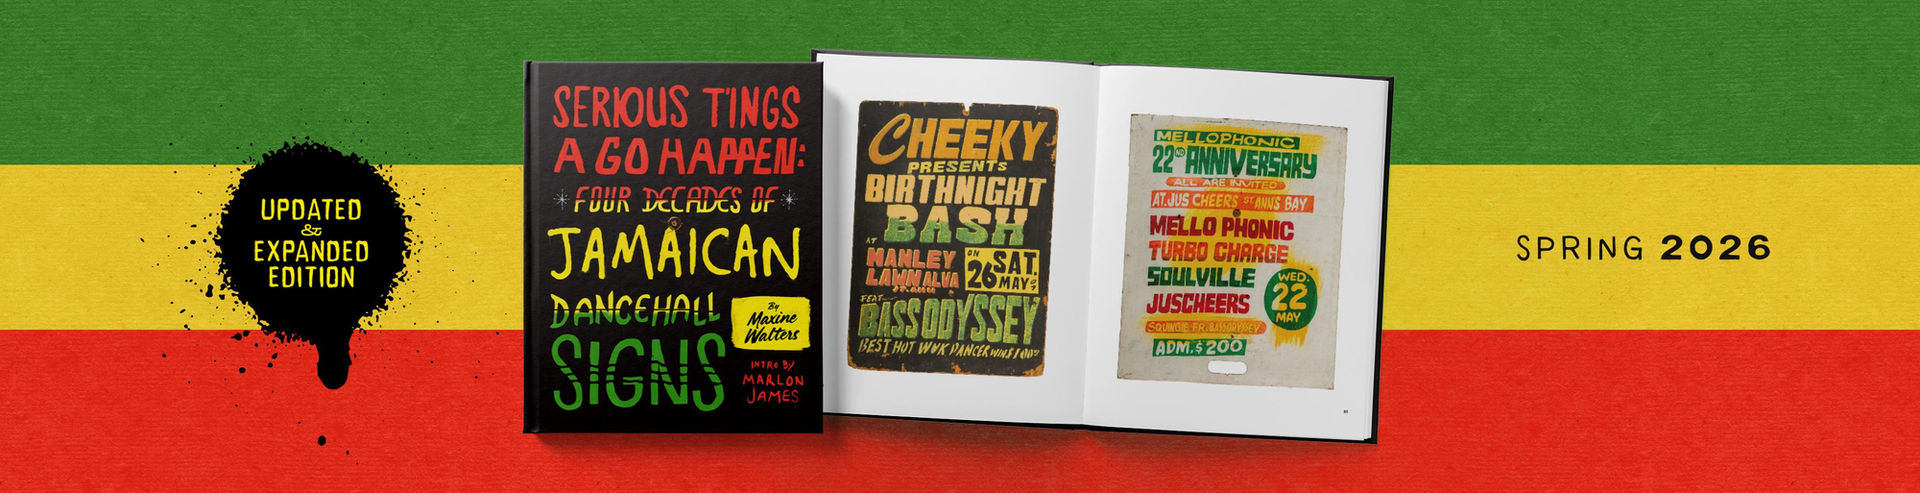 UPDATED
&
EXPANDED
EDITION
SERIOUS T'INGS
A GO HAPPEN:
FOUR DECADES OF
JAMAICAN
DANCEHALL
SIGNS
By
Maxine
Walters
INTRO BY
MARLON
JAMES
CHEEKY
PRESENTS
BIRTHNIGHT
BASH
AT
MANLEY
LAWN ALVA
ST. ANN
ON
SAT.
26 MAY
FEAT.
BASS ODYSSEY
BEST HOT WUK DANCER WINS
MELLOPHONIC
22ND ANNIVERSARY
ALL ARE INVITED
AT. JUS CHEERS ST ANNS BAY
MELLO PHONIC
TURBO CHARGE
SOULVILLE
JUSCHEERS
WED.
22
MAY
SQUINGIE FR. BASSODYSSEY
ADM. $200
SPRING 2026